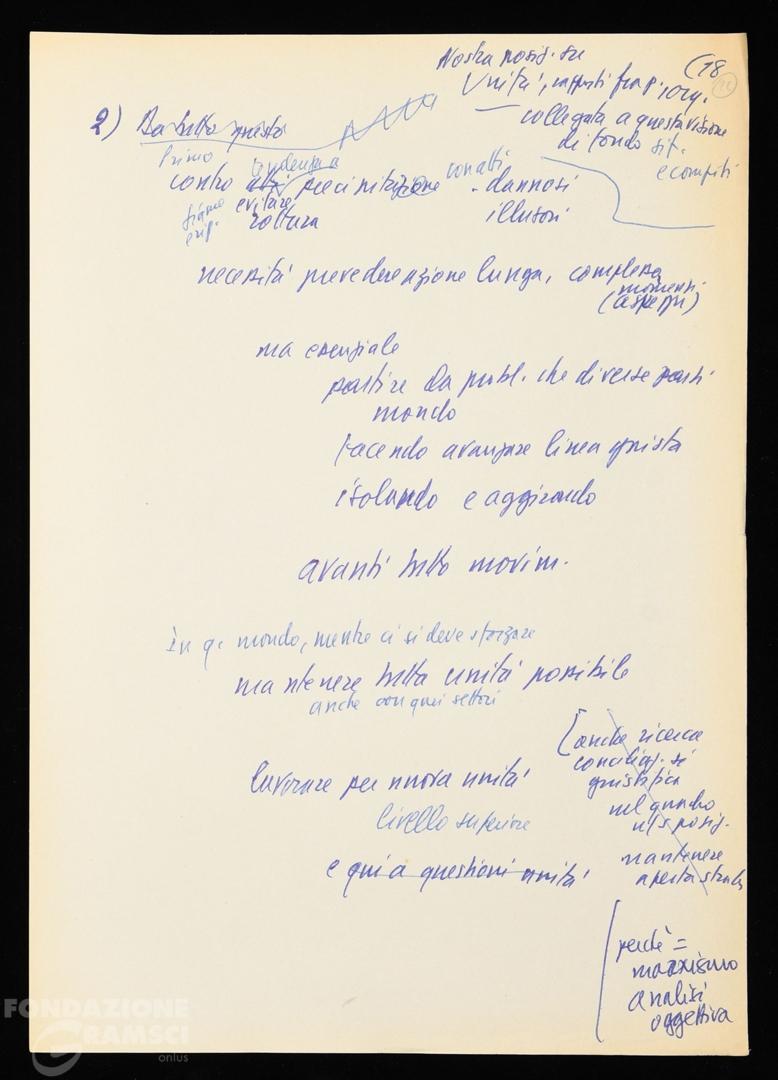 (18
Nostra posiz. su
Unità, rapporti fra p. i org.
collegata a questa visione
di fondo sit.
e compiti
2) Da tutto questo
Primo
tendenza
contro precipitazione conati
- dannosi
siamo
evitare
rottura
illusori
necessità prevedere azione lunga, complessa
momenti
(aspetti)
ma essenziale
partire da probl. che diverse parti
mondo
facendo avanzare linea giusta
isolando e aggirando
avanti tutto movim.
In q. mondo, mentre ci si deve sforzare
mantenere tutta unità possibile
anche con quei settori
[anche ricerca
conciliaz. si
giustifica
nel quadro
n/s posiz.
mantenere
aperta strada
lavorare per nuova unità
livello superiore
e qui a questioni unità
perché =
marxismo
analisi
oggettiva
FONDAZIONE
GRAMSCI
onlus